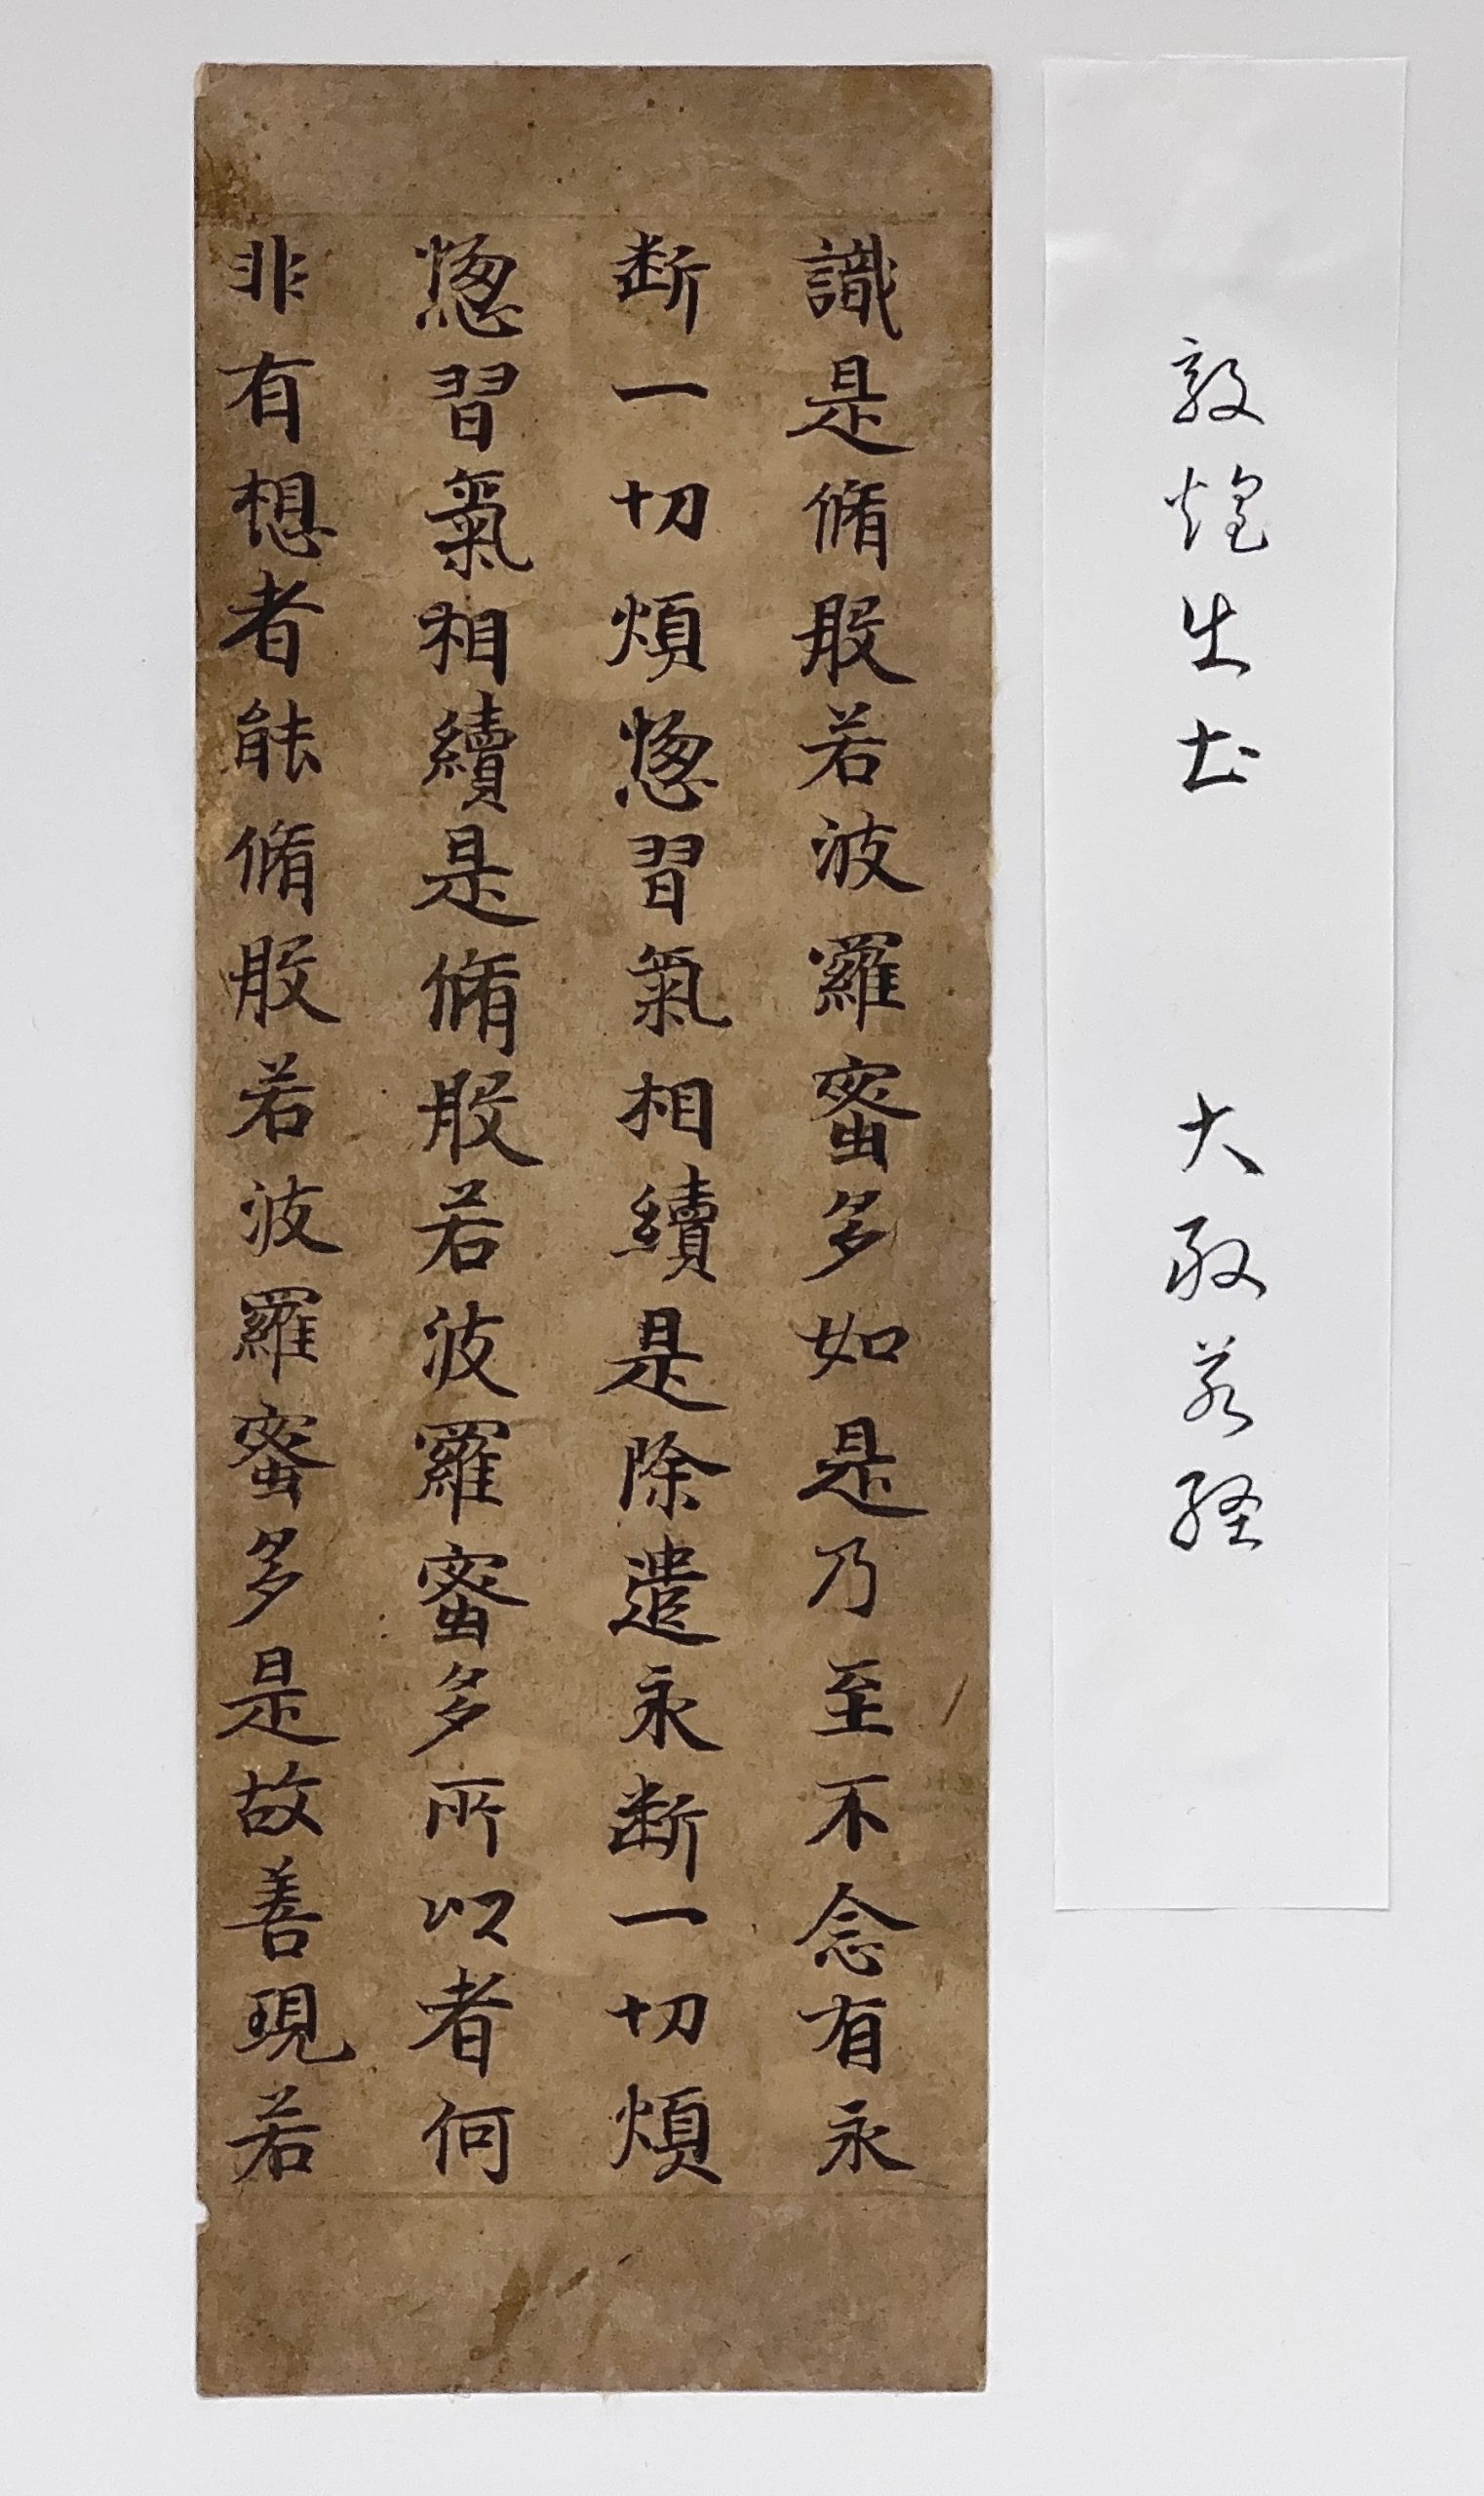 敦煌出土 大般若経
識是脩般若波羅蜜多如是乃至不念有永
断一切煩惱習氣相續是除遣永断一切煩
惱習氣相續是脩般若波羅蜜多所以者何
非有想者能脩般若波羅蜜多是故善現若